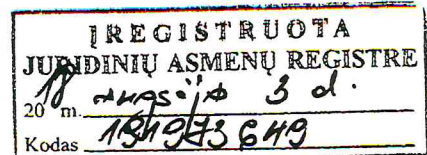 ĮREGISTRUOTA
JURIDINIŲ ASMENŲ REGISTRE
2018 m. 3 d.
Kodas 191973649